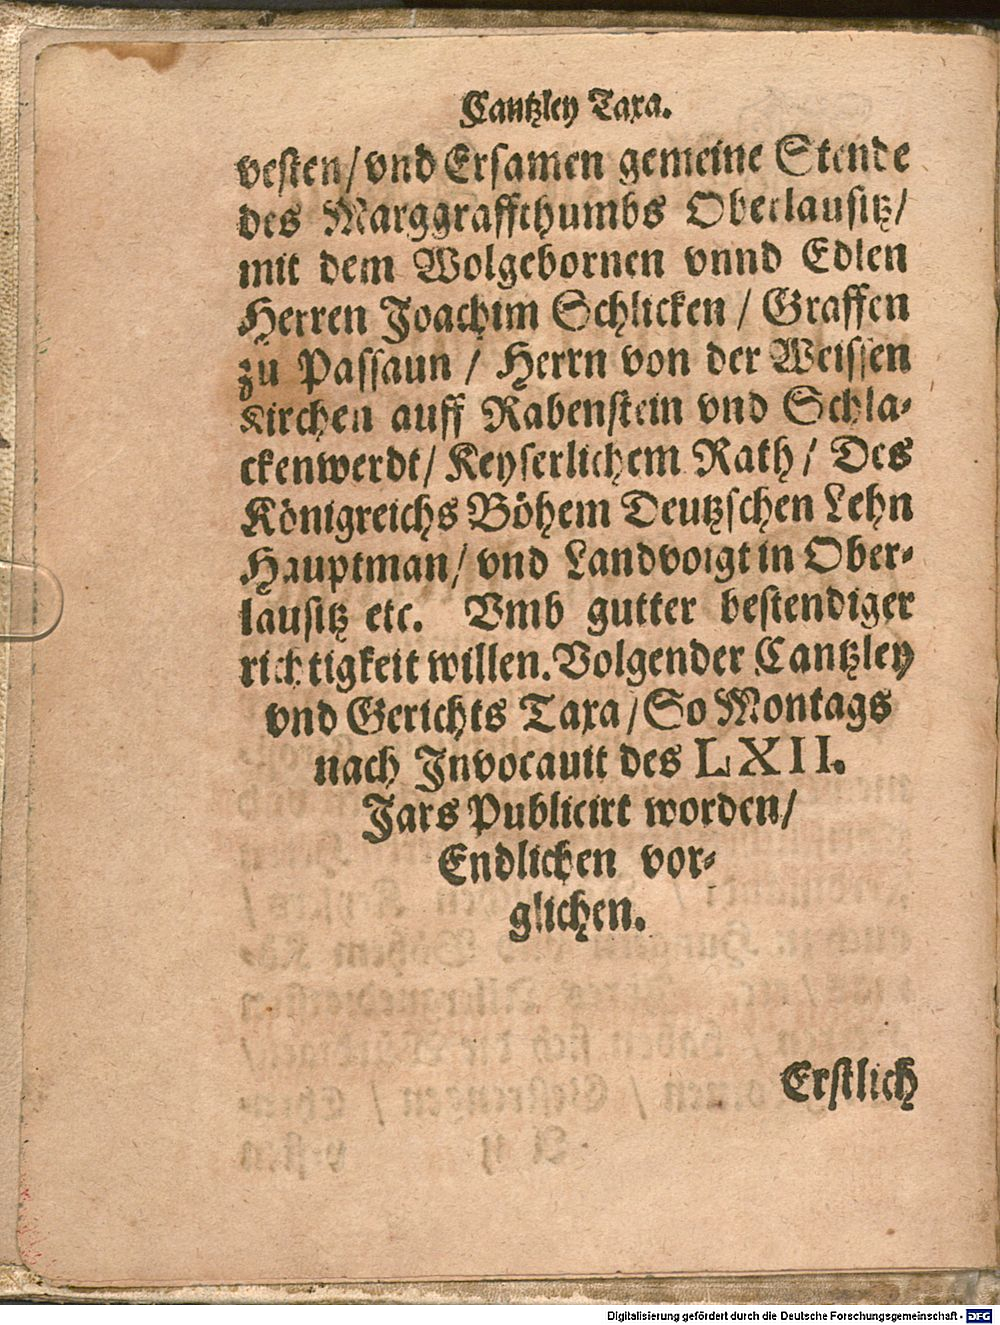 Cantzley Taxa.
vesten/ vnd Ersamen gemeine Stende
des Marggraffthumbs Oberlausitz/
mit dem Wolgebornen vnnd Edlen
Herren Joachim Schlicken / Graffen
zu Passaun / Herrn von der Weissen
Kirchen auff Rabenstein vnd Schla-
ckenwerdt/ Keyserlichem Rath/ Des
Königreichs Böhem Deutzschen Lehn
Hauptman/ vnd Landvoigt in Ober-
lausitz etc. Vmb gutter bestendiger
richtigkeit willen. Volgender Cantzley
vnd Gerichts Taxa/ So Montags
nach Jnvocauit des LXII.
Jars Publicirt worden/
Endlichen vor-
glichen.
Erstlich
Digitalisierung gefördert durch die Deutsche Forschungsgemeinschaft - DFG